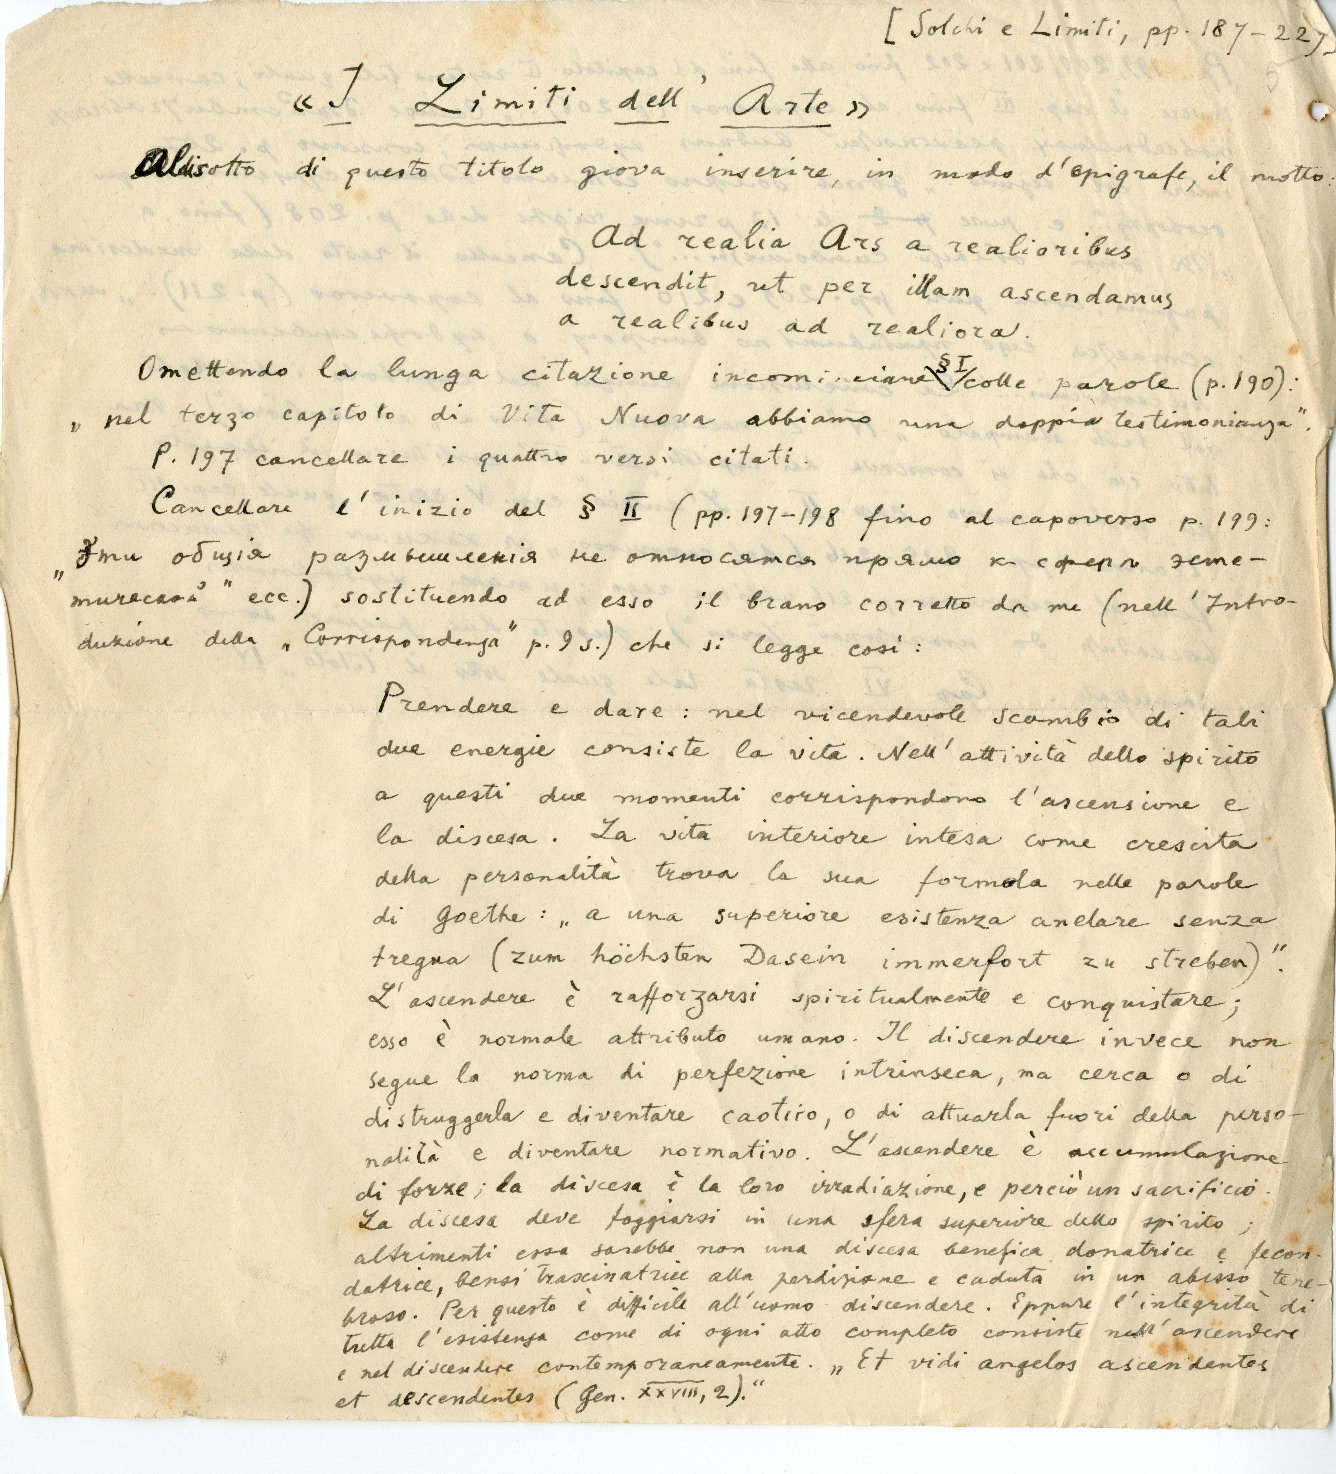 [Solchi e Limiti, pp. 187–227]
5
« I Limiti dell' Arte »
Aldisotto di questo titolo giova inserire, in modo d'epigrafe, il motto:
Ad realia Ars a realioribus
descendit, ut per illam ascendamus
a realibus ad realiora.
Omettendo la lunga citazione incominciare § I colle parole (p. 190):
„ nel terzo capitolo di Vita Nuova abbiamo una doppia testimonianza".
P. 197 cancellare i quattro versi citati.
Cancellare l'inizio del § II (pp. 197–198 fino al capoverso p. 199:
„Эти общія размышленія не относятся прямо к сферѣ эсте-
тической" ecc.) sostituendo ad esso il brano corretto da me (nell'Intro-
duzione della „Corrispondenza" p. 9 s.) che si legge così:
Prendere e dare: nel vicendevole scambio di tali
due energie consiste la vita. Nell'attività dello spirito
a questi due momenti corrispondono l'ascensione e
la discesa. La vita interiore intesa come crescita
della personalità trova la sua formola nelle parole
di Goethe: „a una superiore esistenza anelare senza
tregua (zum höchsten Dasein immerfort zu streben)".
L'ascendere è rafforzarsi spiritualmente e conquistare;
esso è normale attributo umano. Il discendere invece non
segue la norma di perfezione intrinseca, ma cerca o di
distruggerla e diventare caotico, o di attuarla fuori della perso-
nalità e diventare normativo. L'ascendere è accumulazione
di forze; la discesa è la loro irradiazione, e perciò un sacrificio.
La discesa deve foggiarsi in una sfera superiore dello spirito;
altrimenti essa sarebbe non una discesa benefica donatrice e fecon-
datrice, bensì trascinatrice alla perdizione e caduta in un abisso tene-
broso. Per questo è difficile all'uomo discendere. Eppure l'integrità di
tutta l'esistenza come di ogni atto completo consiste nell'ascendere
e nel discendere contemporaneamente. „Et vidi angelos ascendentes
et descendentes (Gen. XXVIII, 2)."